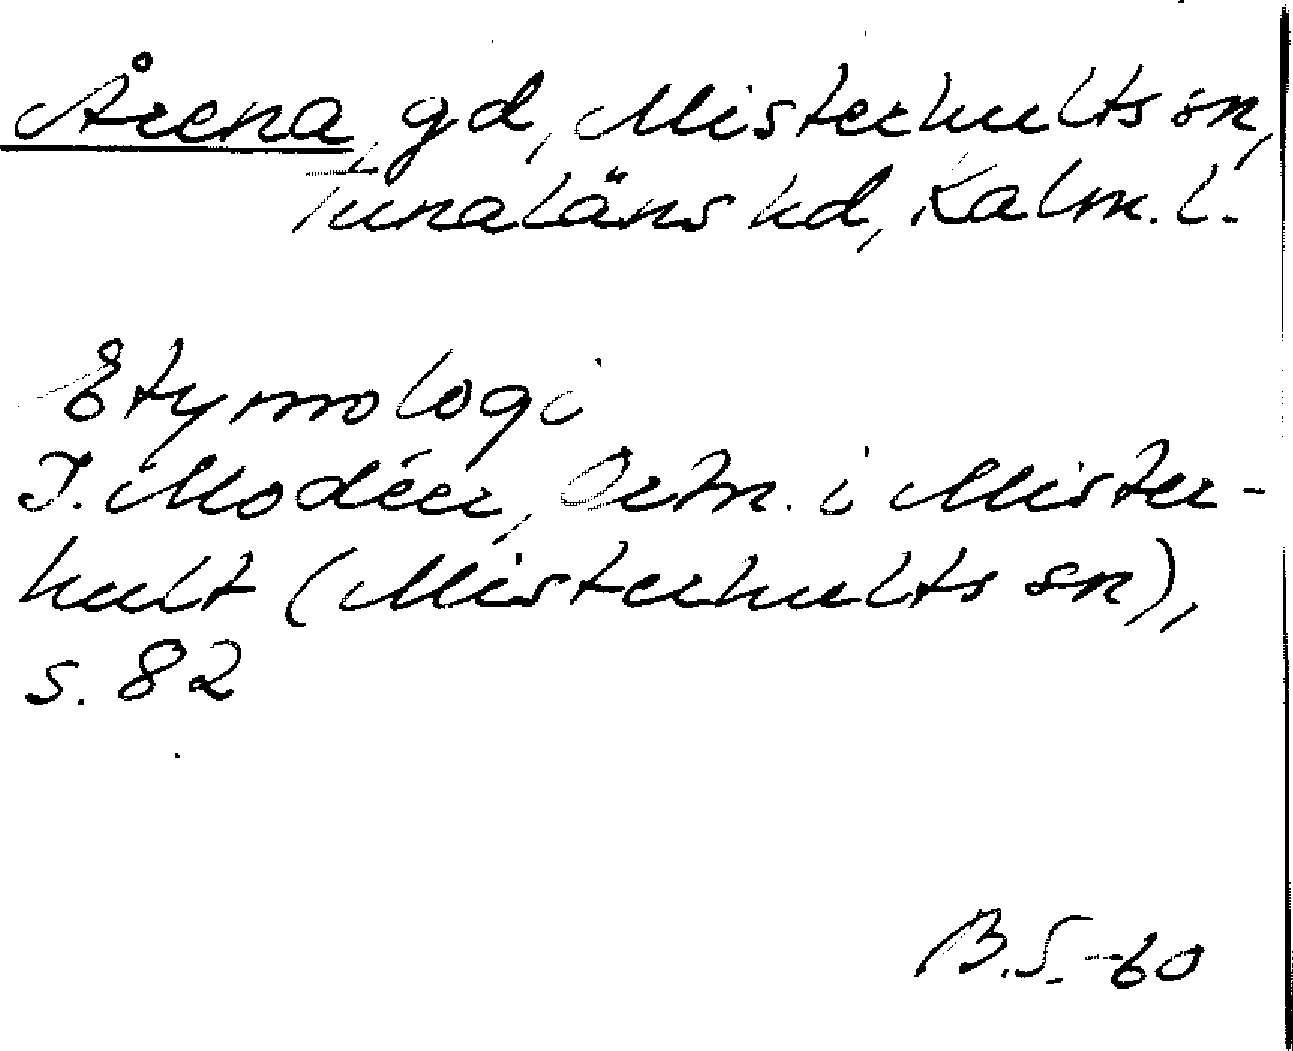 Årena gd, Misterhults sn,
Tunaläns hd, Kalm. l.
Etymologi
I. Modéer, Ortn. i Mister-
hult (Misterhults sn),
s. 82
B.S.-60